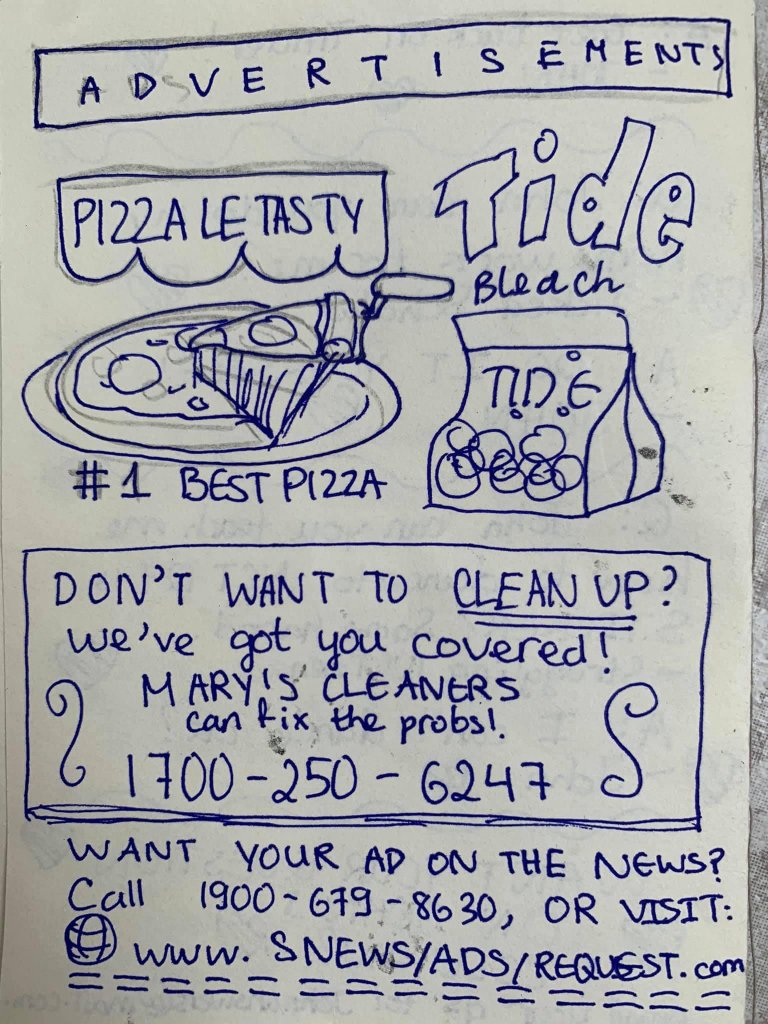 ADVERTISEMENTS
PIZZA LE TASTY
Tide
Bleach
T.I.D.E
#1 BEST PIZZA
DON'T WANT TO CLEAN UP?
we've got you covered!
MARY'S CLEANERS
can fix the probs!
1700-250-6247
WANT YOUR AD ON THE NEWS?
Call 1900-679-8630, OR VISIT:
www.SNEWS/ADS/REQUEST.com